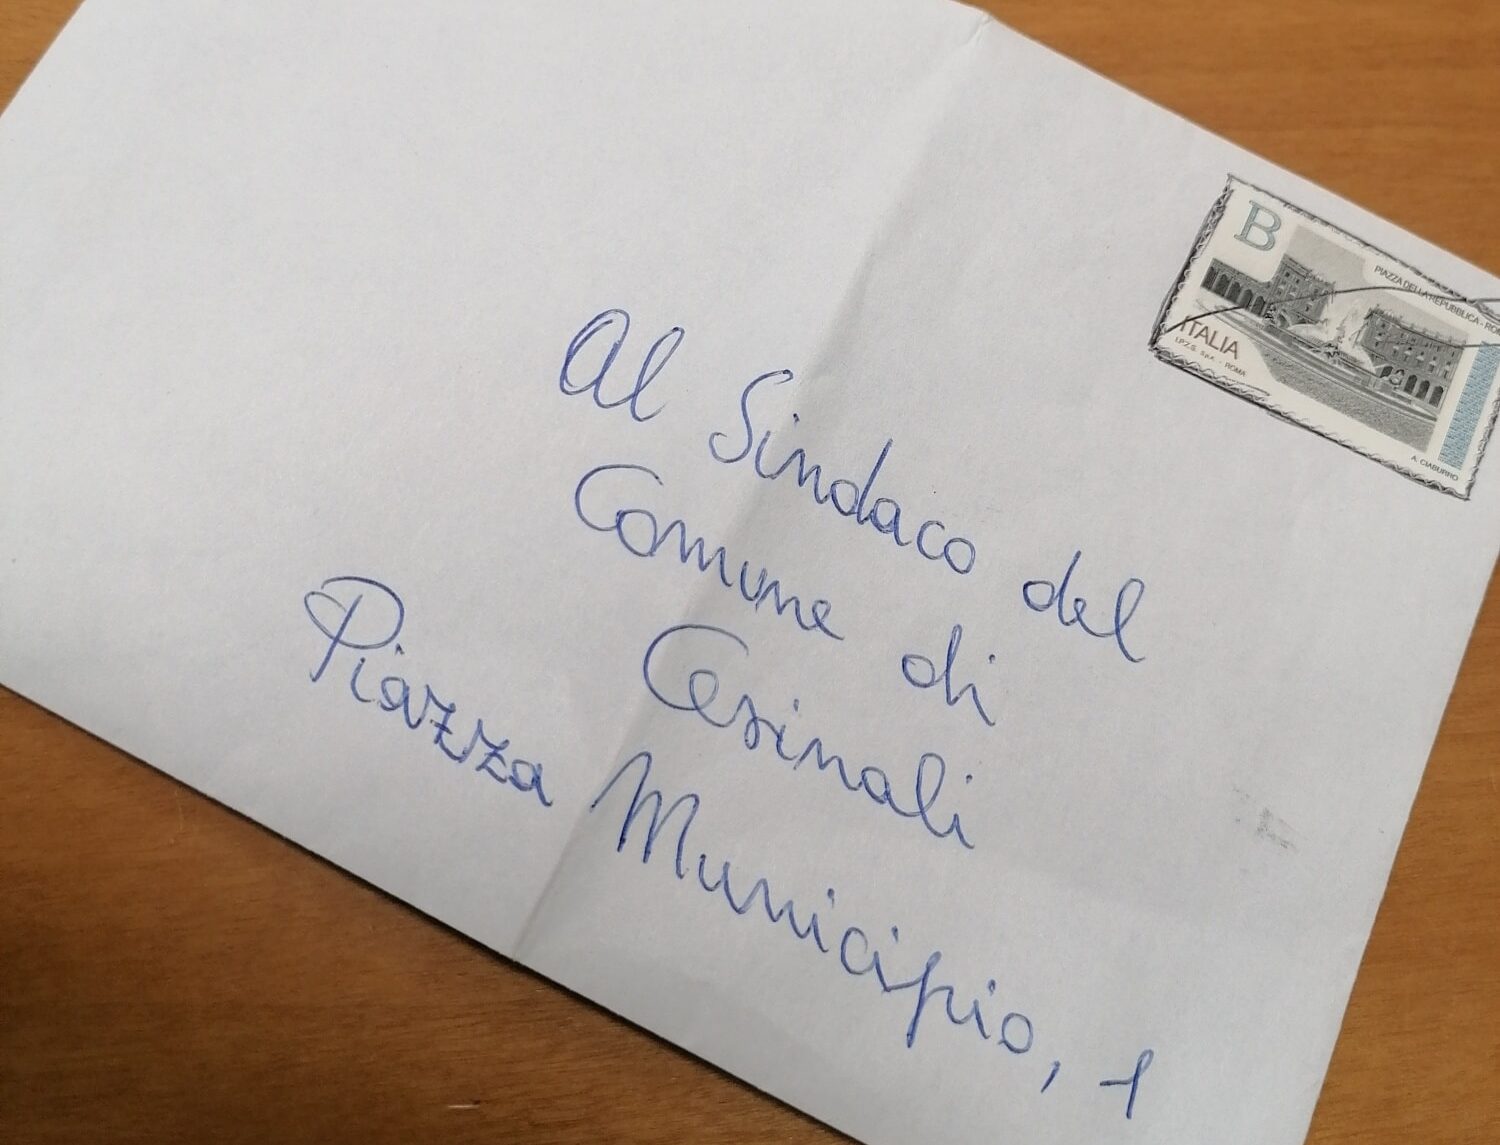 B
PIAZZA DELLA REPUBBLICA - RO
ITALIA
I.P.Z.S. S.p.A. - ROMA
A. CIABURRO
Al Sindaco del
Comune di
Cesinali
Piazza Municipio, 1